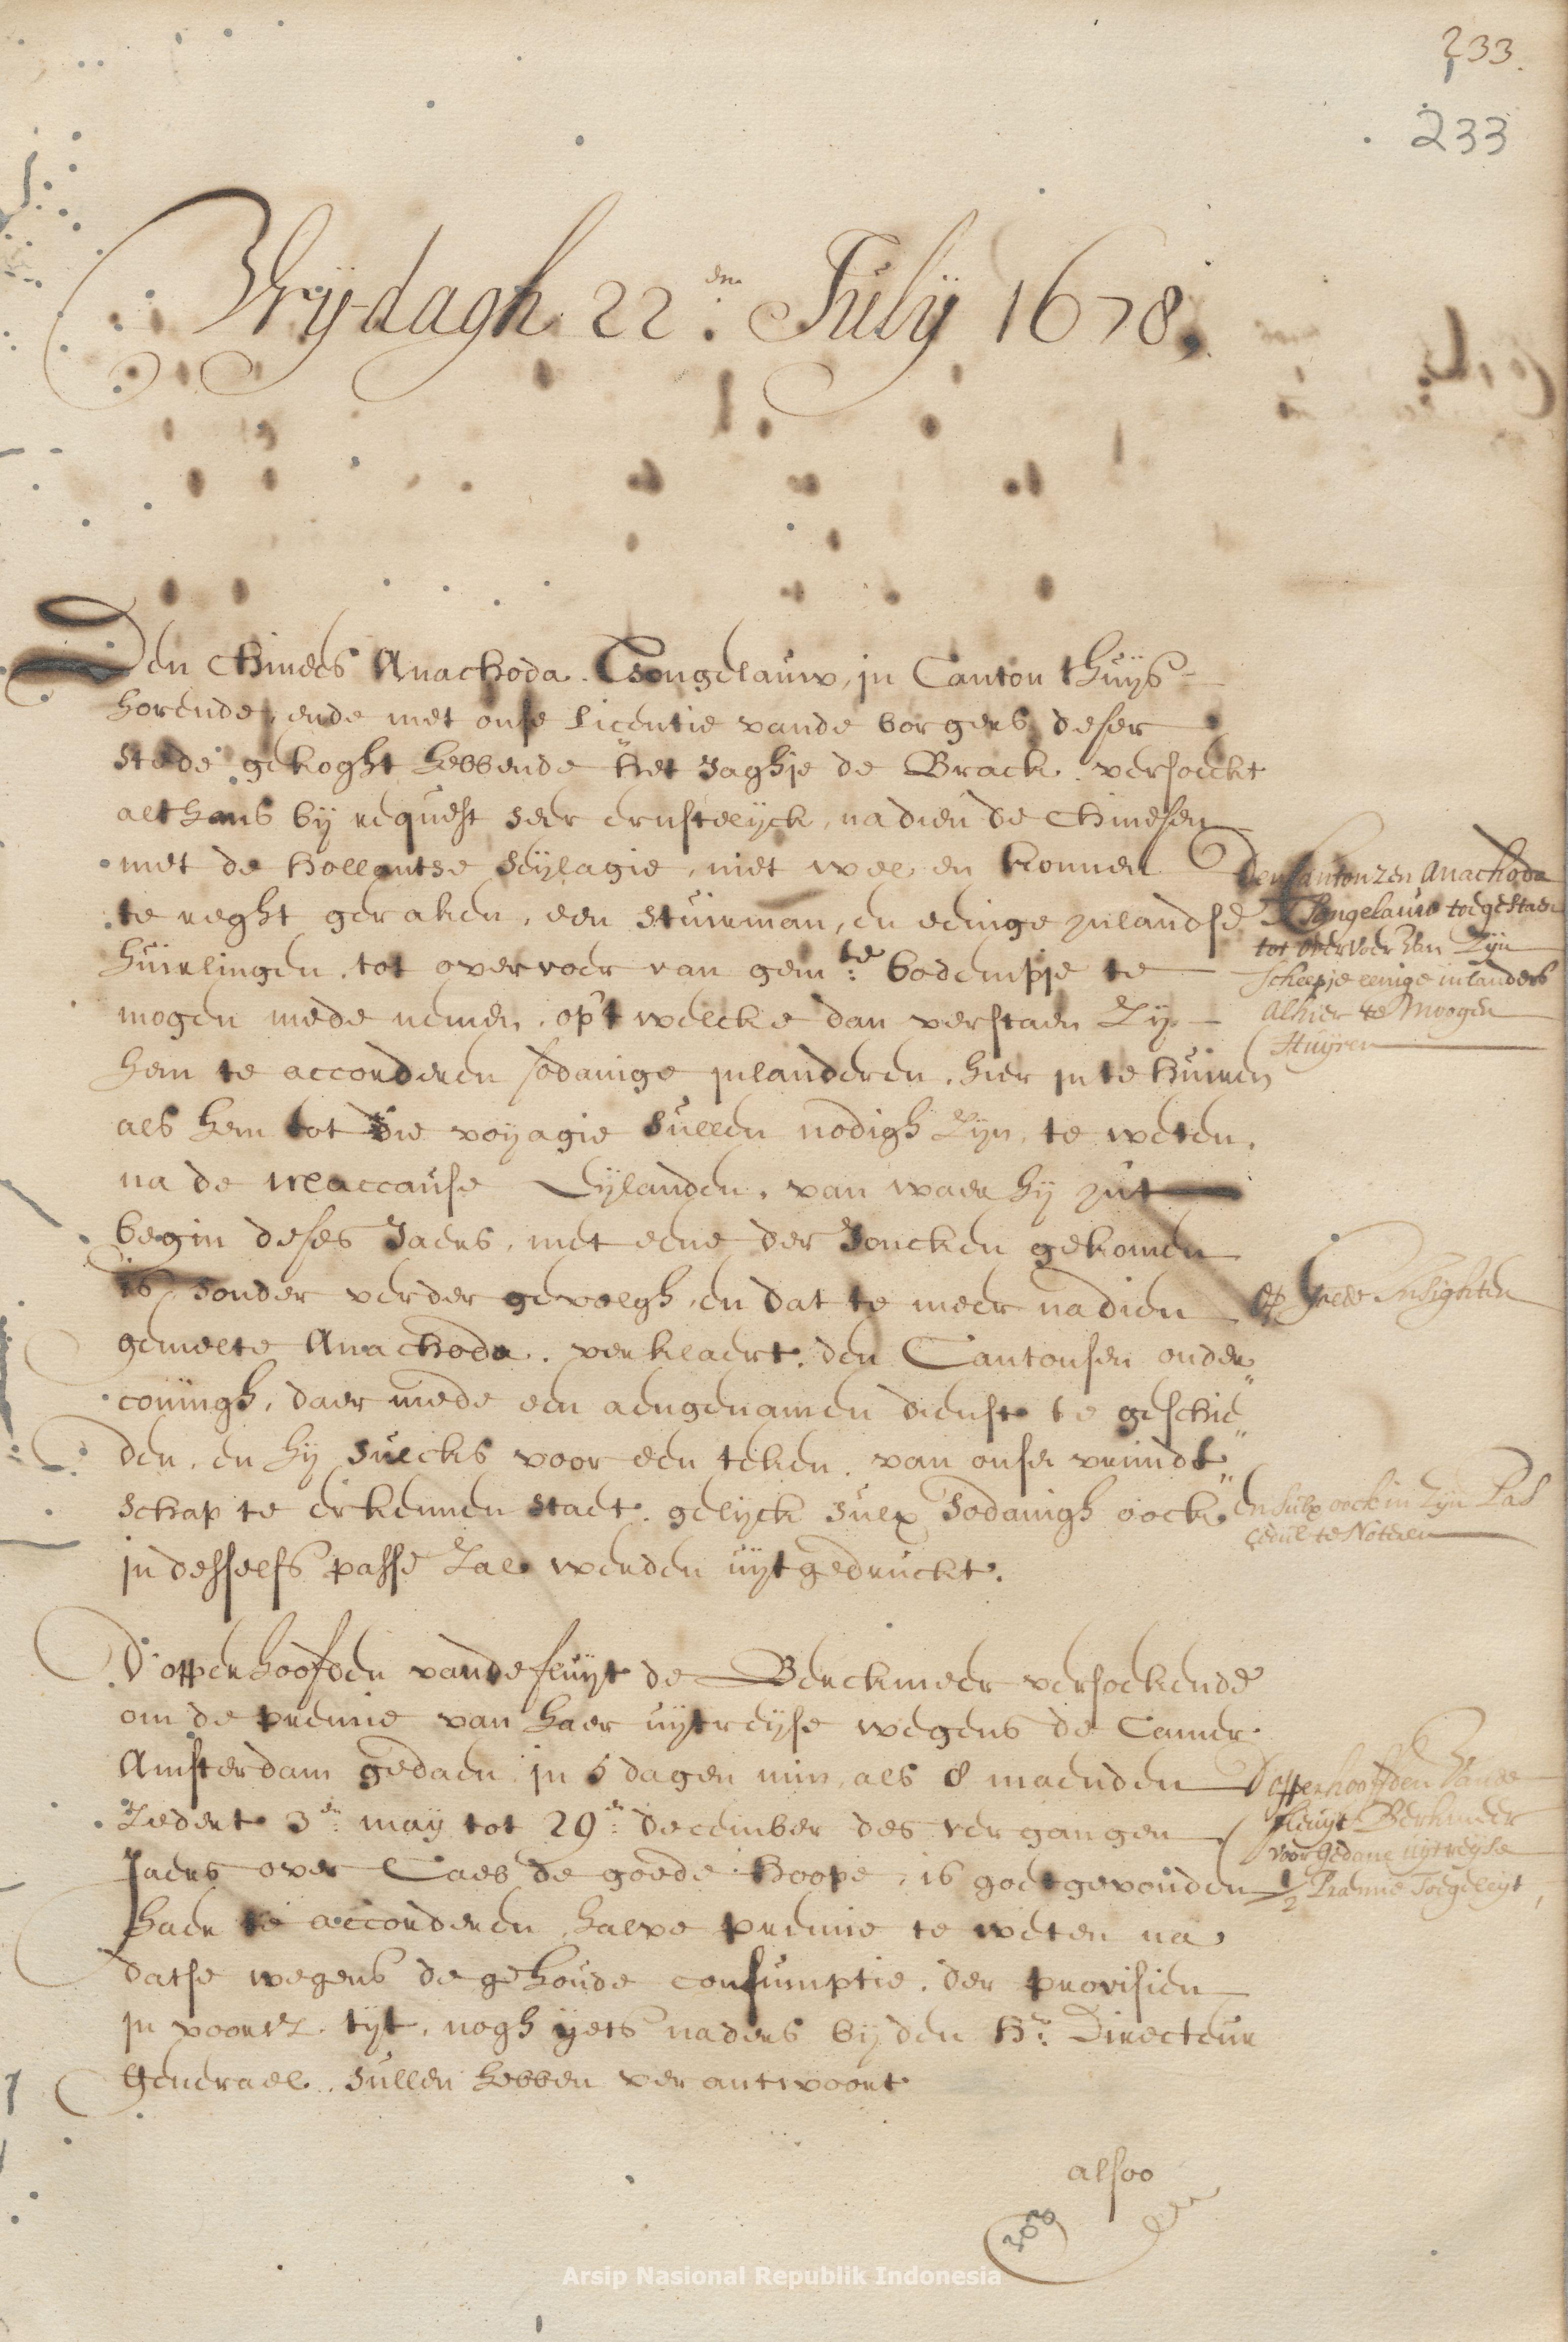 233.
233
Vrydagh 22:en July 1678.
Den Chinees Anachoda Tsongelauw, in Canton thuys
horende, ende met onse licentie vande borgers deser
stede gekoght hebbende het Jaghje de Brack versoeckt
althans bij request seer ernstelijck, nadien de Chinesen
met de hollantse seijlagie, niet wel en konnen
te reght geraken, een stuirman, en eenige inlandse
huirlingen, tot overvoer van gem:te bodempje te
mogen mede nemen, op't welcke dan verstaen zy
hem te accorderen sodanige inlanderen, hier in te huiren
als hem tot die voijagie sullen nodigh zijn, te weten,
na de Maccause Eijlanden, van waer hij int
begin deses Jaers, met eene der Joncken gekomen
is, sonder verder gevolgh, en dat te meer nadien
gemelte Anachoda verklaert, den Cantonsen onder
coningh, daer mede een aengenamen dienst te geschie
den, en hij sulcks voor een teken van onse vrindt
schap te erkennen staet, gelijck sulx sodanigh oock
in desselfs passe zal werden uijtgedruckt.
Den Cantonzen Anachoda
Tsongelauw toegestaen
tot overvoer van Zijn
scheepje eenige inlanders
alhier te moogen
Huijren
op Insighten
en sulx oock in Zijn Pas
cedul te Noteren
D'opperhoofden vande fluijt de Berckmeer versoekende
om de premie van haer uijtreijse wegens de Camer
Amsterdam gedaen in 5 dagen min, als 8 maenden
zedert 3:en maij tot 29:en december des vergangen
Jaers over Caes de goede Hoope, is goetgevonden
haer te accorderen halve premie te weten na
datse wegens de gehoude consumptie der provisien
in voors. tijt, nogh ijets naders bij den Hr: Directeur
Generael sullen hebben verantwoort
D'opperhooffden vande
fluijt Berkmeer
voor gedane uijtreyse
1/2 Premie Toegeleijt
alsoo
Arsip Nasional Republik Indonesia